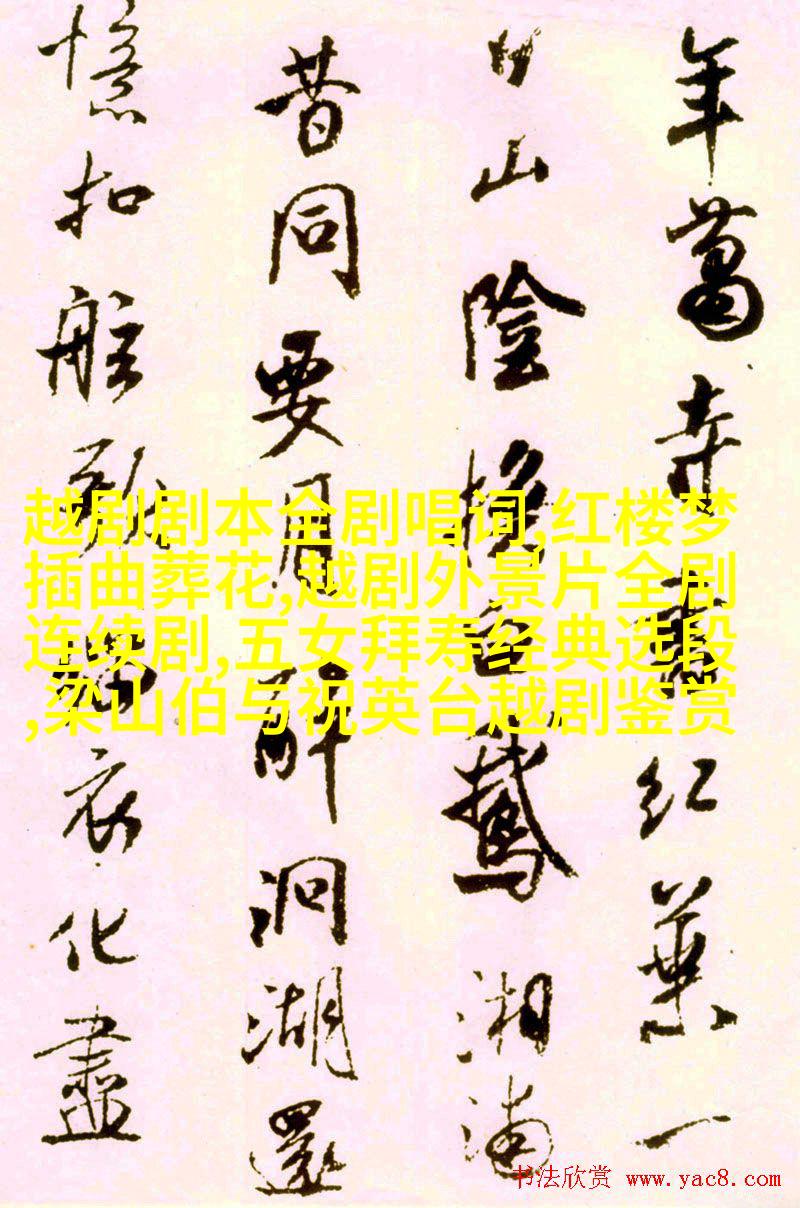 年萬幸書紅葉一
日山陰換白鵝湘浦
昔同要月醉洞湖還
憶扣舷歌緇衣化盡
越剧剧本全剧唱词,红楼梦
插曲葬花,越剧外景片全剧
连续剧,五女拜寿经典选段
,梁山伯与祝英台越剧鉴赏
书法欣赏 www.yac8.com